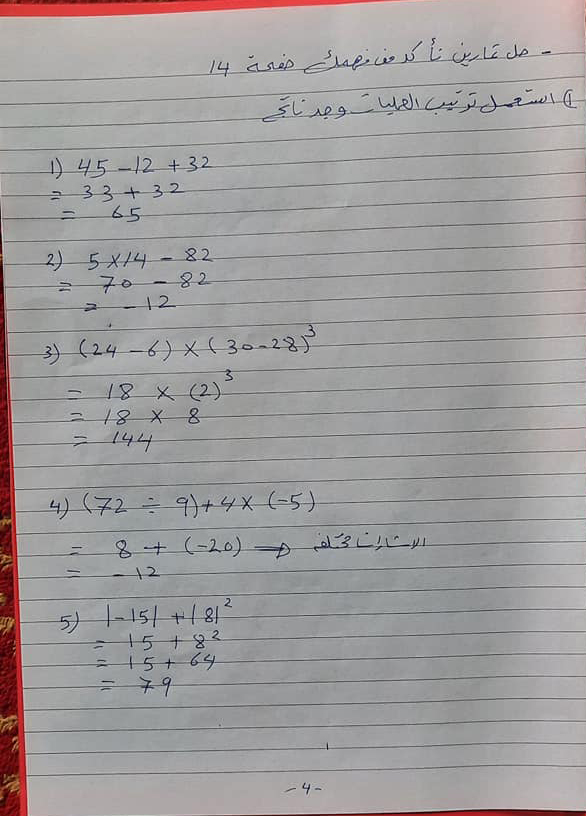 - حل تمارين تأكد من فهمك صفحة 14
1) استعمل ترتيب العمليات وجد ناتج
1) 45 - 12 + 32
= 33 + 32
= 65
2) 5 × 14 - 82
= 70 - 82
= - 12
3) (24 - 6) × (30 - 28)³
= 18 × (2)³
= 18 × 8
= 144
4) (72 ÷ 9) + 4 × (-5)
= 8 + (-20) ⇒ الاشارات مختلفه
= - 12
5) |-15| + |8|²
= 15 + 8²
= 15 + 64
= 79
- 4 -